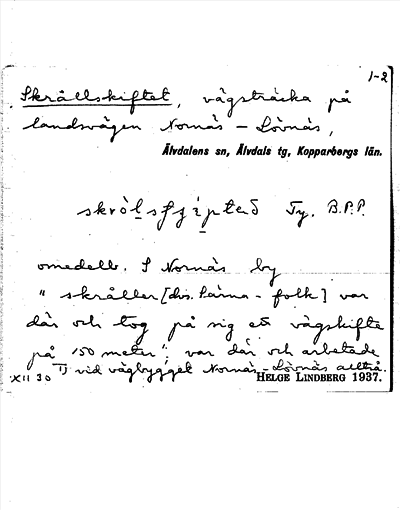 1-2
Skrållskiftet, vägsträcka på
landsvägen Nornäs – Lövnäs,
Älvdalens sn, Älvdals tg, Kopparbergs län.
Ty. B.P.P.
omedelb. S Nornäs by
" skråller [dvs. Särna-folk] var
där och tog på sig ett vägskifte
på 150 meter"; var där och arbetade
1) vid vägbygget Nornäs–Lövnäs alltså.
XII 30
HELGE LINDBERG 1937.